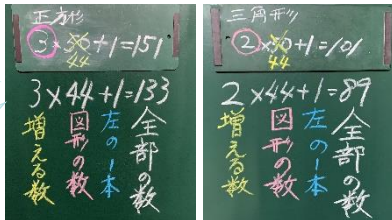 正方形
3×50+1=151
44
3×44+1=133
増える数
図形の数
左の1本
全部の数
三角形
2×50+1=101
44
2×44+1=89
増える数
図形の数
左の1本
全部の数